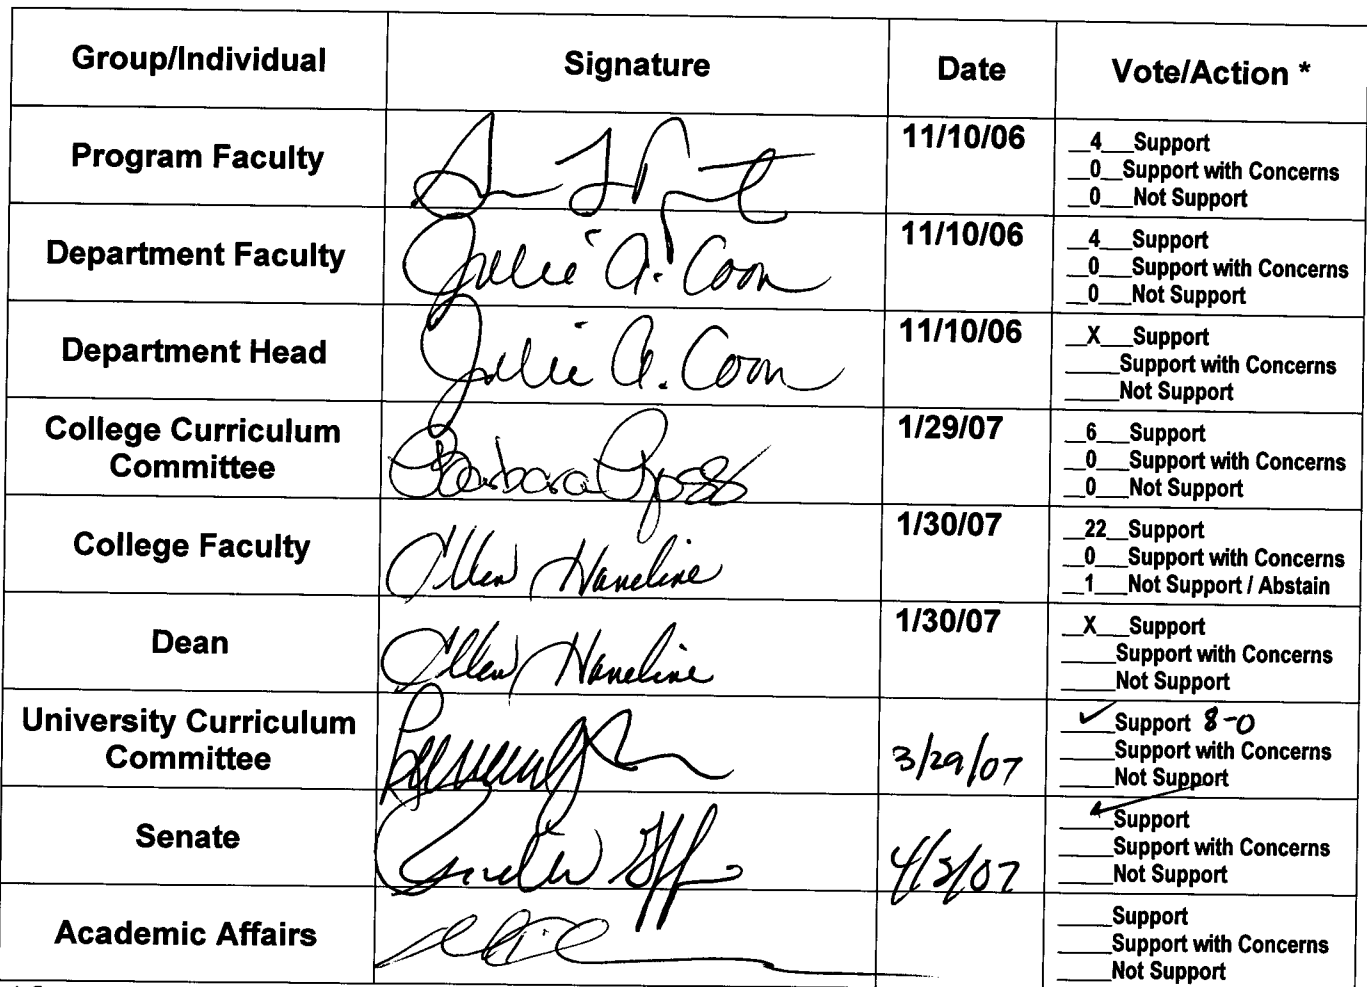 Group/Individual Signature Date Vote/Action *
Program Faculty 11/10/06 __4___Support
__0__Support with Concerns
__0___Not Support
Department Faculty Julie A. Coon 11/10/06 __4___Support
__0___Support with Concerns
__0___Not Support
Department Head Julie A. Coon 11/10/06 __X___Support
_____Support with Concerns
_____Not Support
College Curriculum
Committee Barbara Ross 1/29/07 __6___Support
__0___Support with Concerns
__0___Not Support
College Faculty Ellen Haneline 1/30/07 __22__Support
__0___Support with Concerns
__1___Not Support / Abstain
Dean Ellen Haneline 1/30/07 __X___Support
_____Support with Concerns
_____Not Support
University Curriculum
Committee 3/29/07 ✓ Support 8-0
_____Support with Concerns
_____Not Support
Senate 4/3/07 ✓ Support
_____Support with Concerns
_____Not Support
Academic Affairs _____Support
_____Support with Concerns
_____Not Support